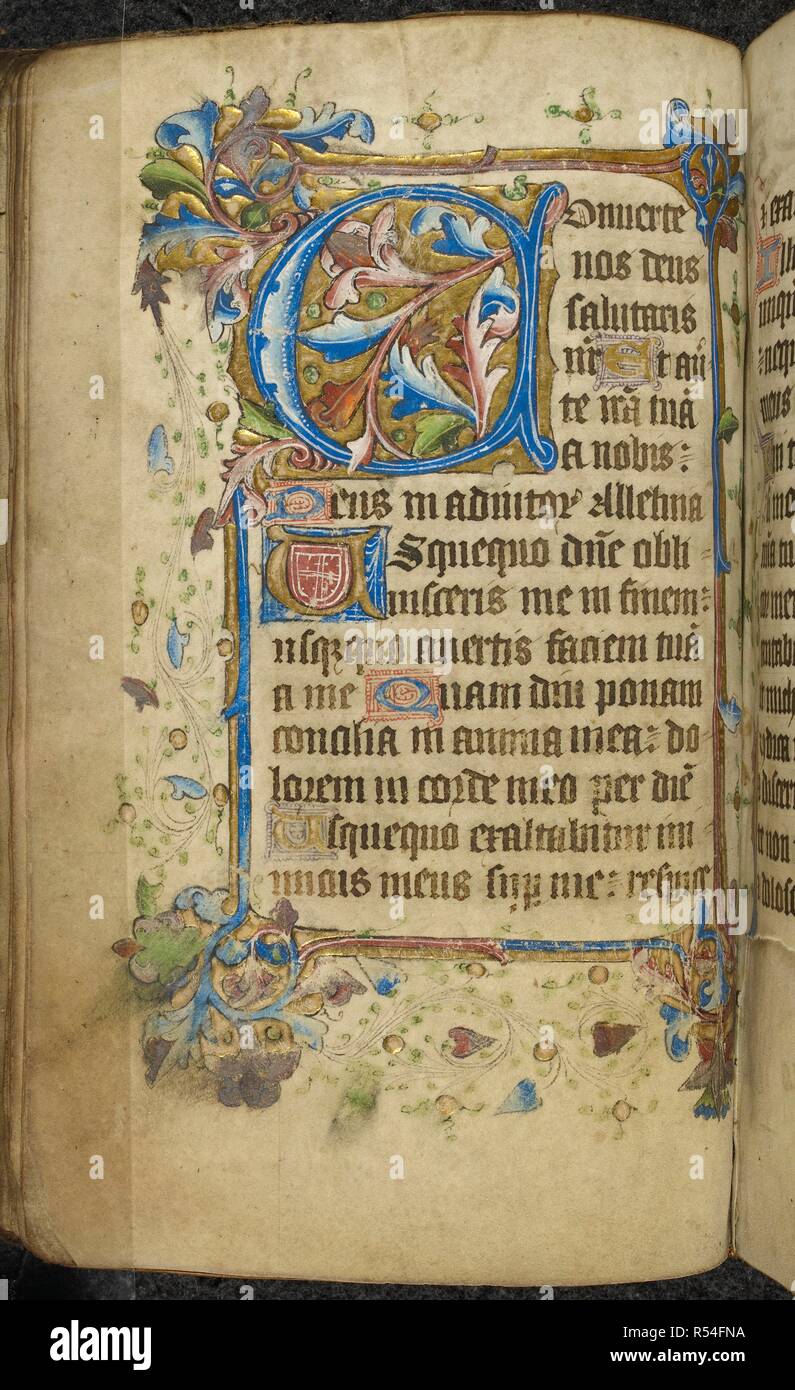 Conuerte
nos deus
salutaris
nr̄ Et au̅
te irā tuā
a nobis:
Deus in adiutor Alleluia
Usquequo dn̄e obli-
uisceris me in finem:
usq̨quo auertis faciem tuā
a me Quam diu ponam
concilia in anima mea: do
lorem in corde meo per diē
Usquequo exaltabitur ini-
micus meus sup̱ me: respice
alamy
Image ID: R54FNA
www.alamy.com